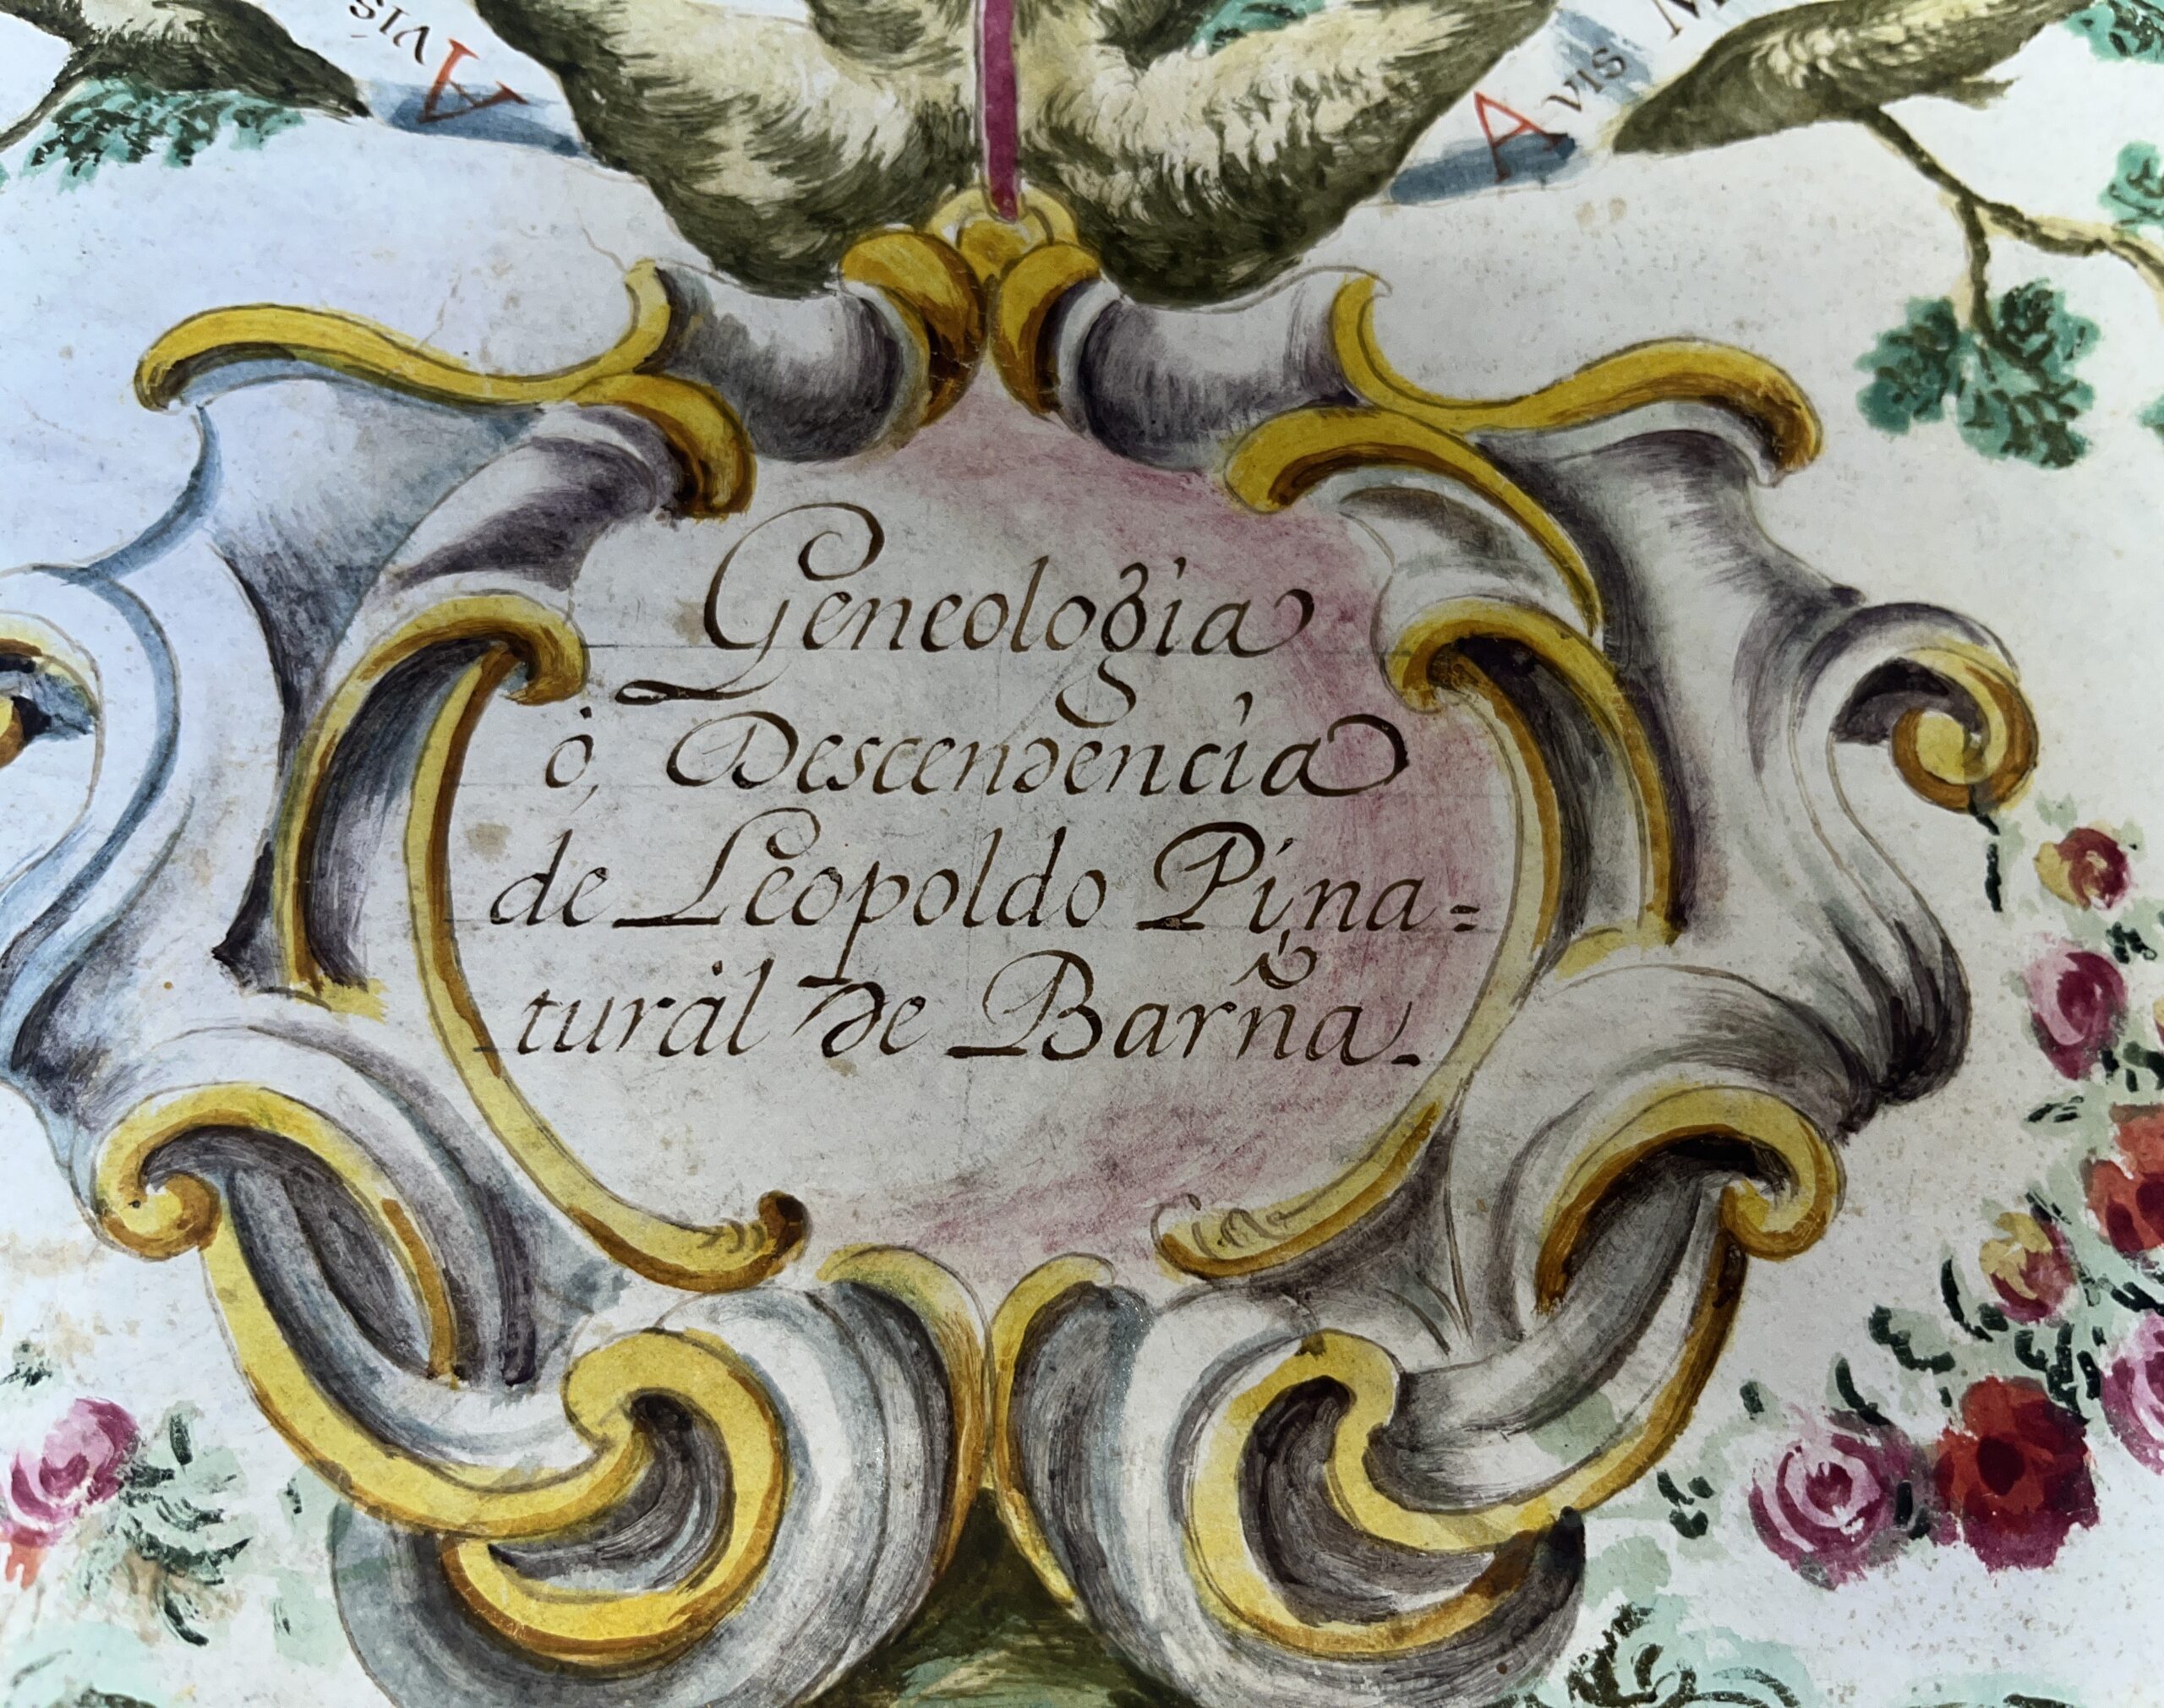 Avis
Avis M
Geneologia
ò, Descendencia
de Leopoldo Pi, na=
turàl de Barña.